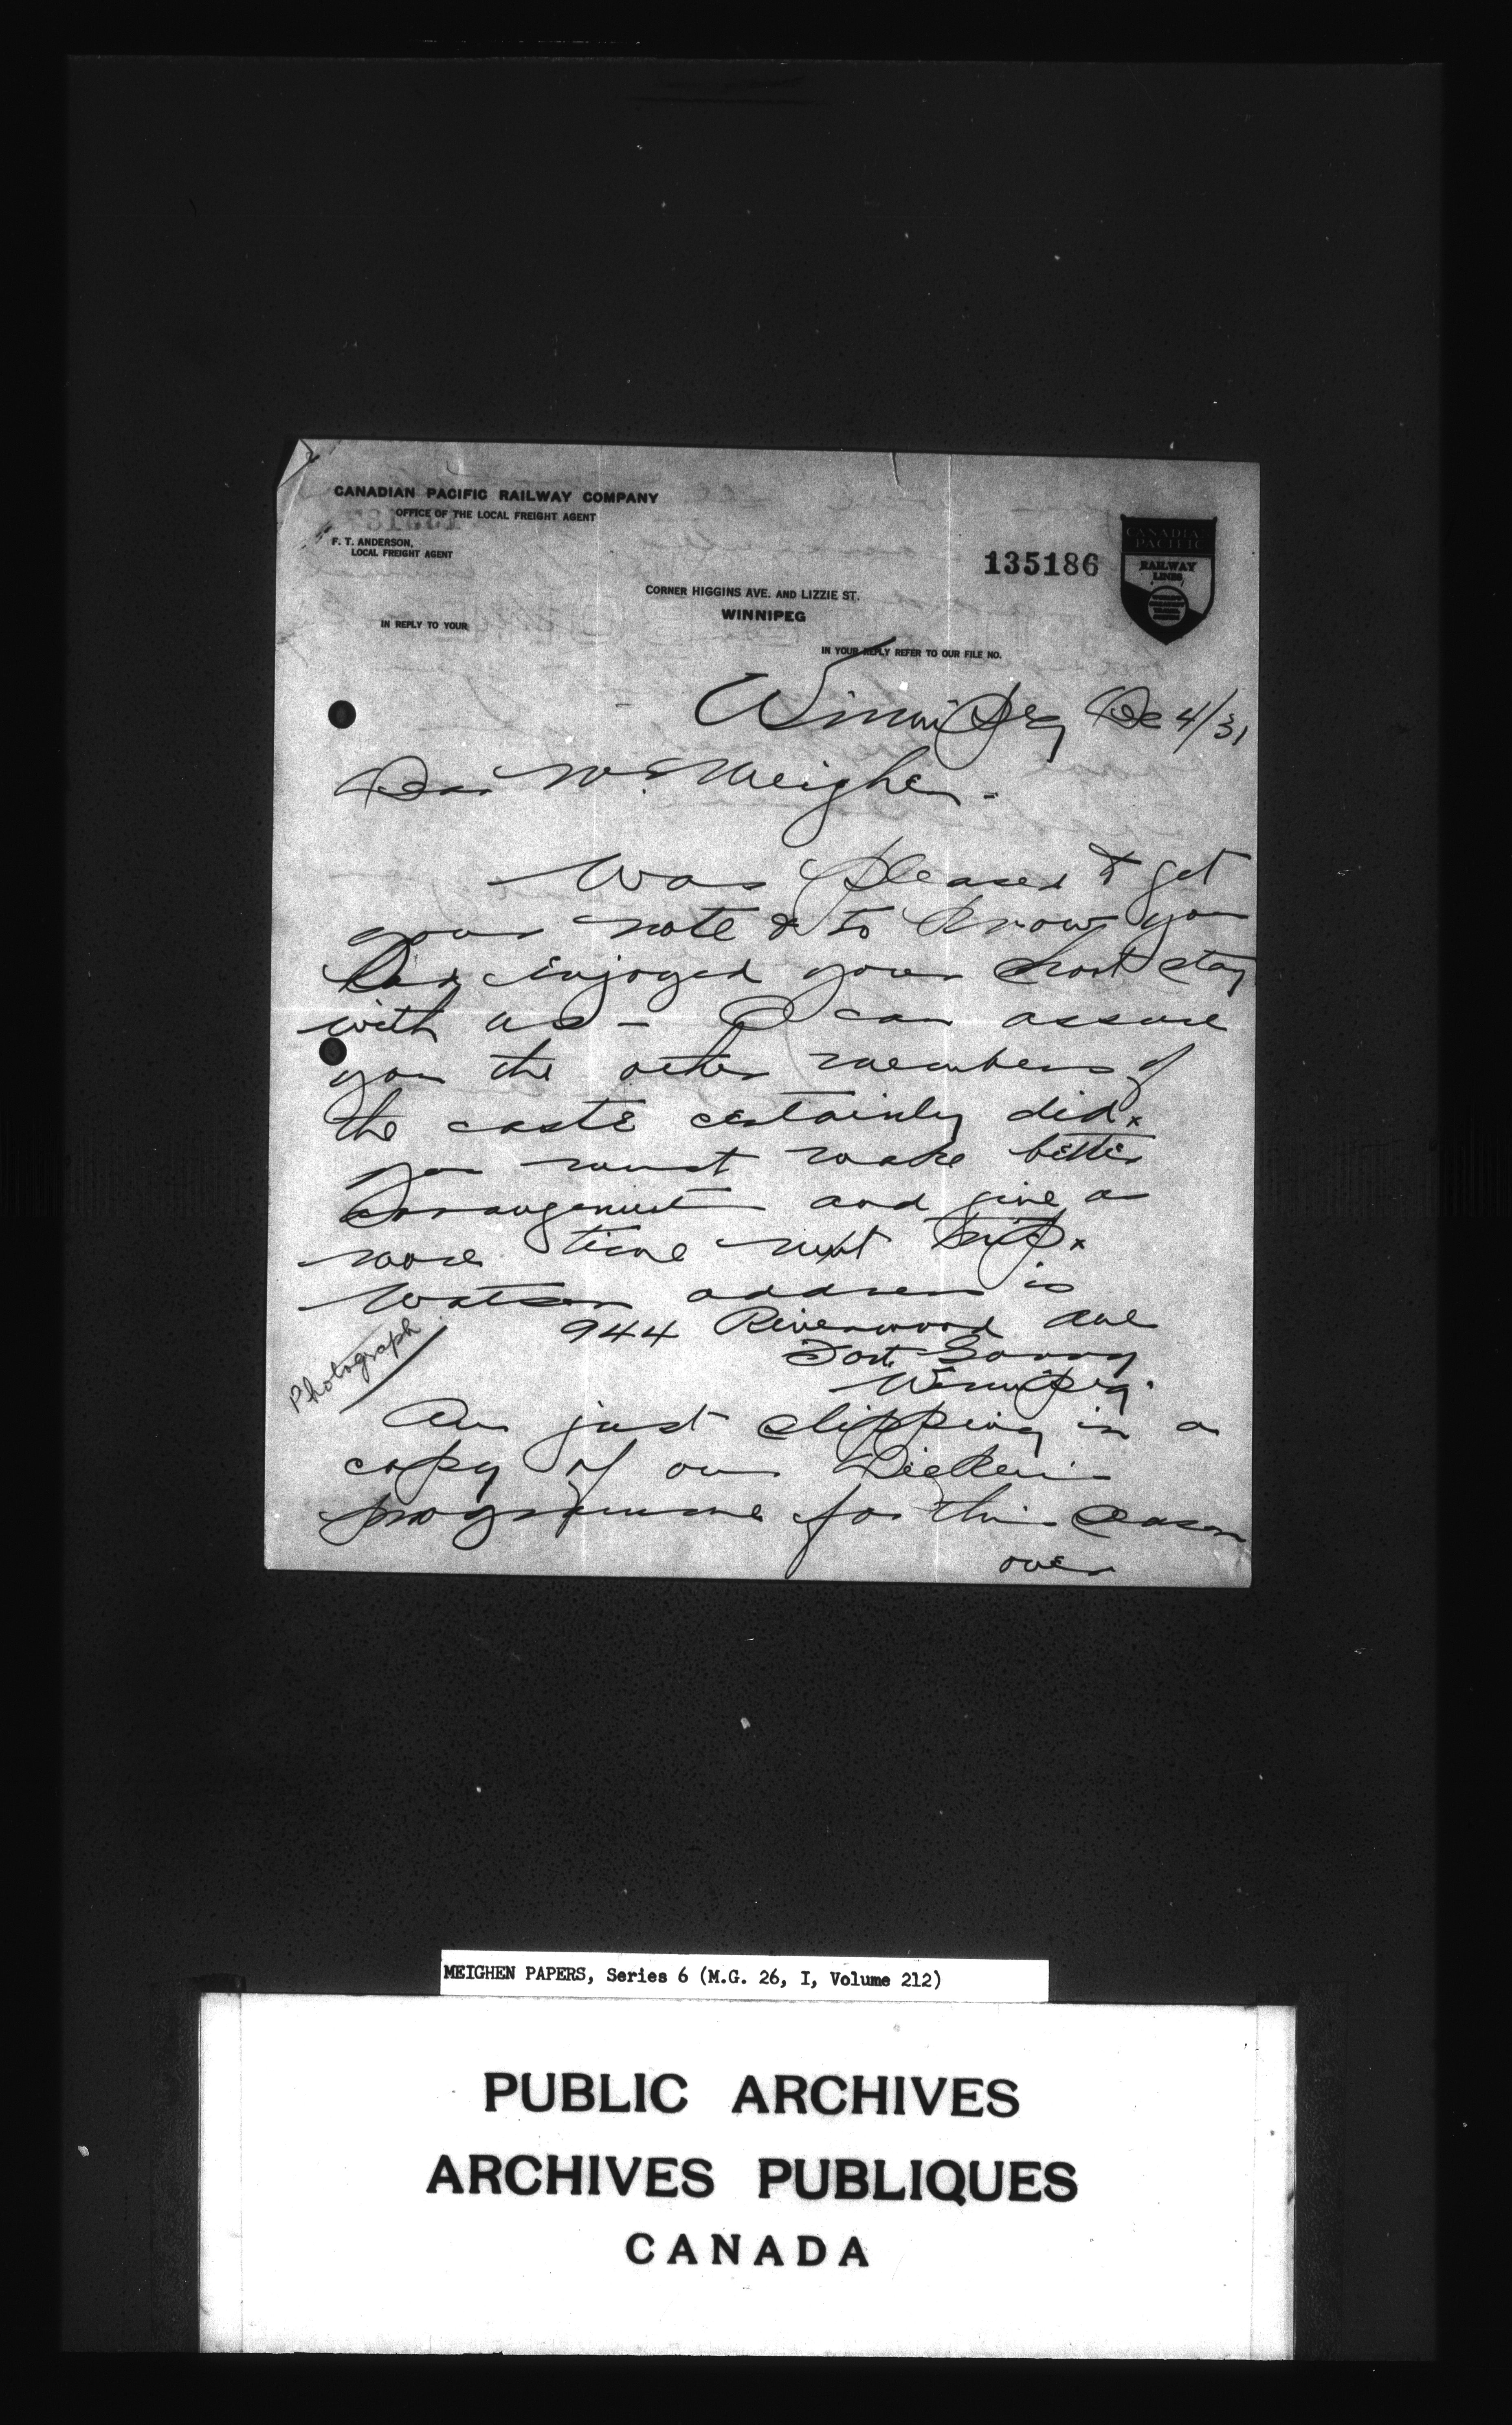 CANADIAN PACIFIC RAILWAY COMPANY
OFFICE OF THE LOCAL FREIGHT AGENT
F. T. ANDERSON,
LOCAL FREIGHT AGENT
135186
CANADIAN PACIFIC
RAILWAY
LINES
CORNER HIGGINS AVE. AND LIZZIE ST.
WINNIPEG
IN REPLY TO YOUR
IN YOUR REPLY REFER TO OUR FILE NO.
Winnipeg Dec 4/31
Dear Mr Meighen.
Was pleased to get
your note & to know you
had enjoyed your short stay
with us – I can assure
you the other members of
the caste certainly did.
you must make better
arrangements and give us
more time next trip.
Watson address is
944 Riverwood Ave
Fort Garry
Winnipeg.
Photograph
Am just slipping in a
copy of our Dickens
programme for this season
over
MEIGHEN PAPERS, Series 6 (M.G. 26, I, Volume 212)
PUBLIC ARCHIVES
ARCHIVES PUBLIQUES
CANADA